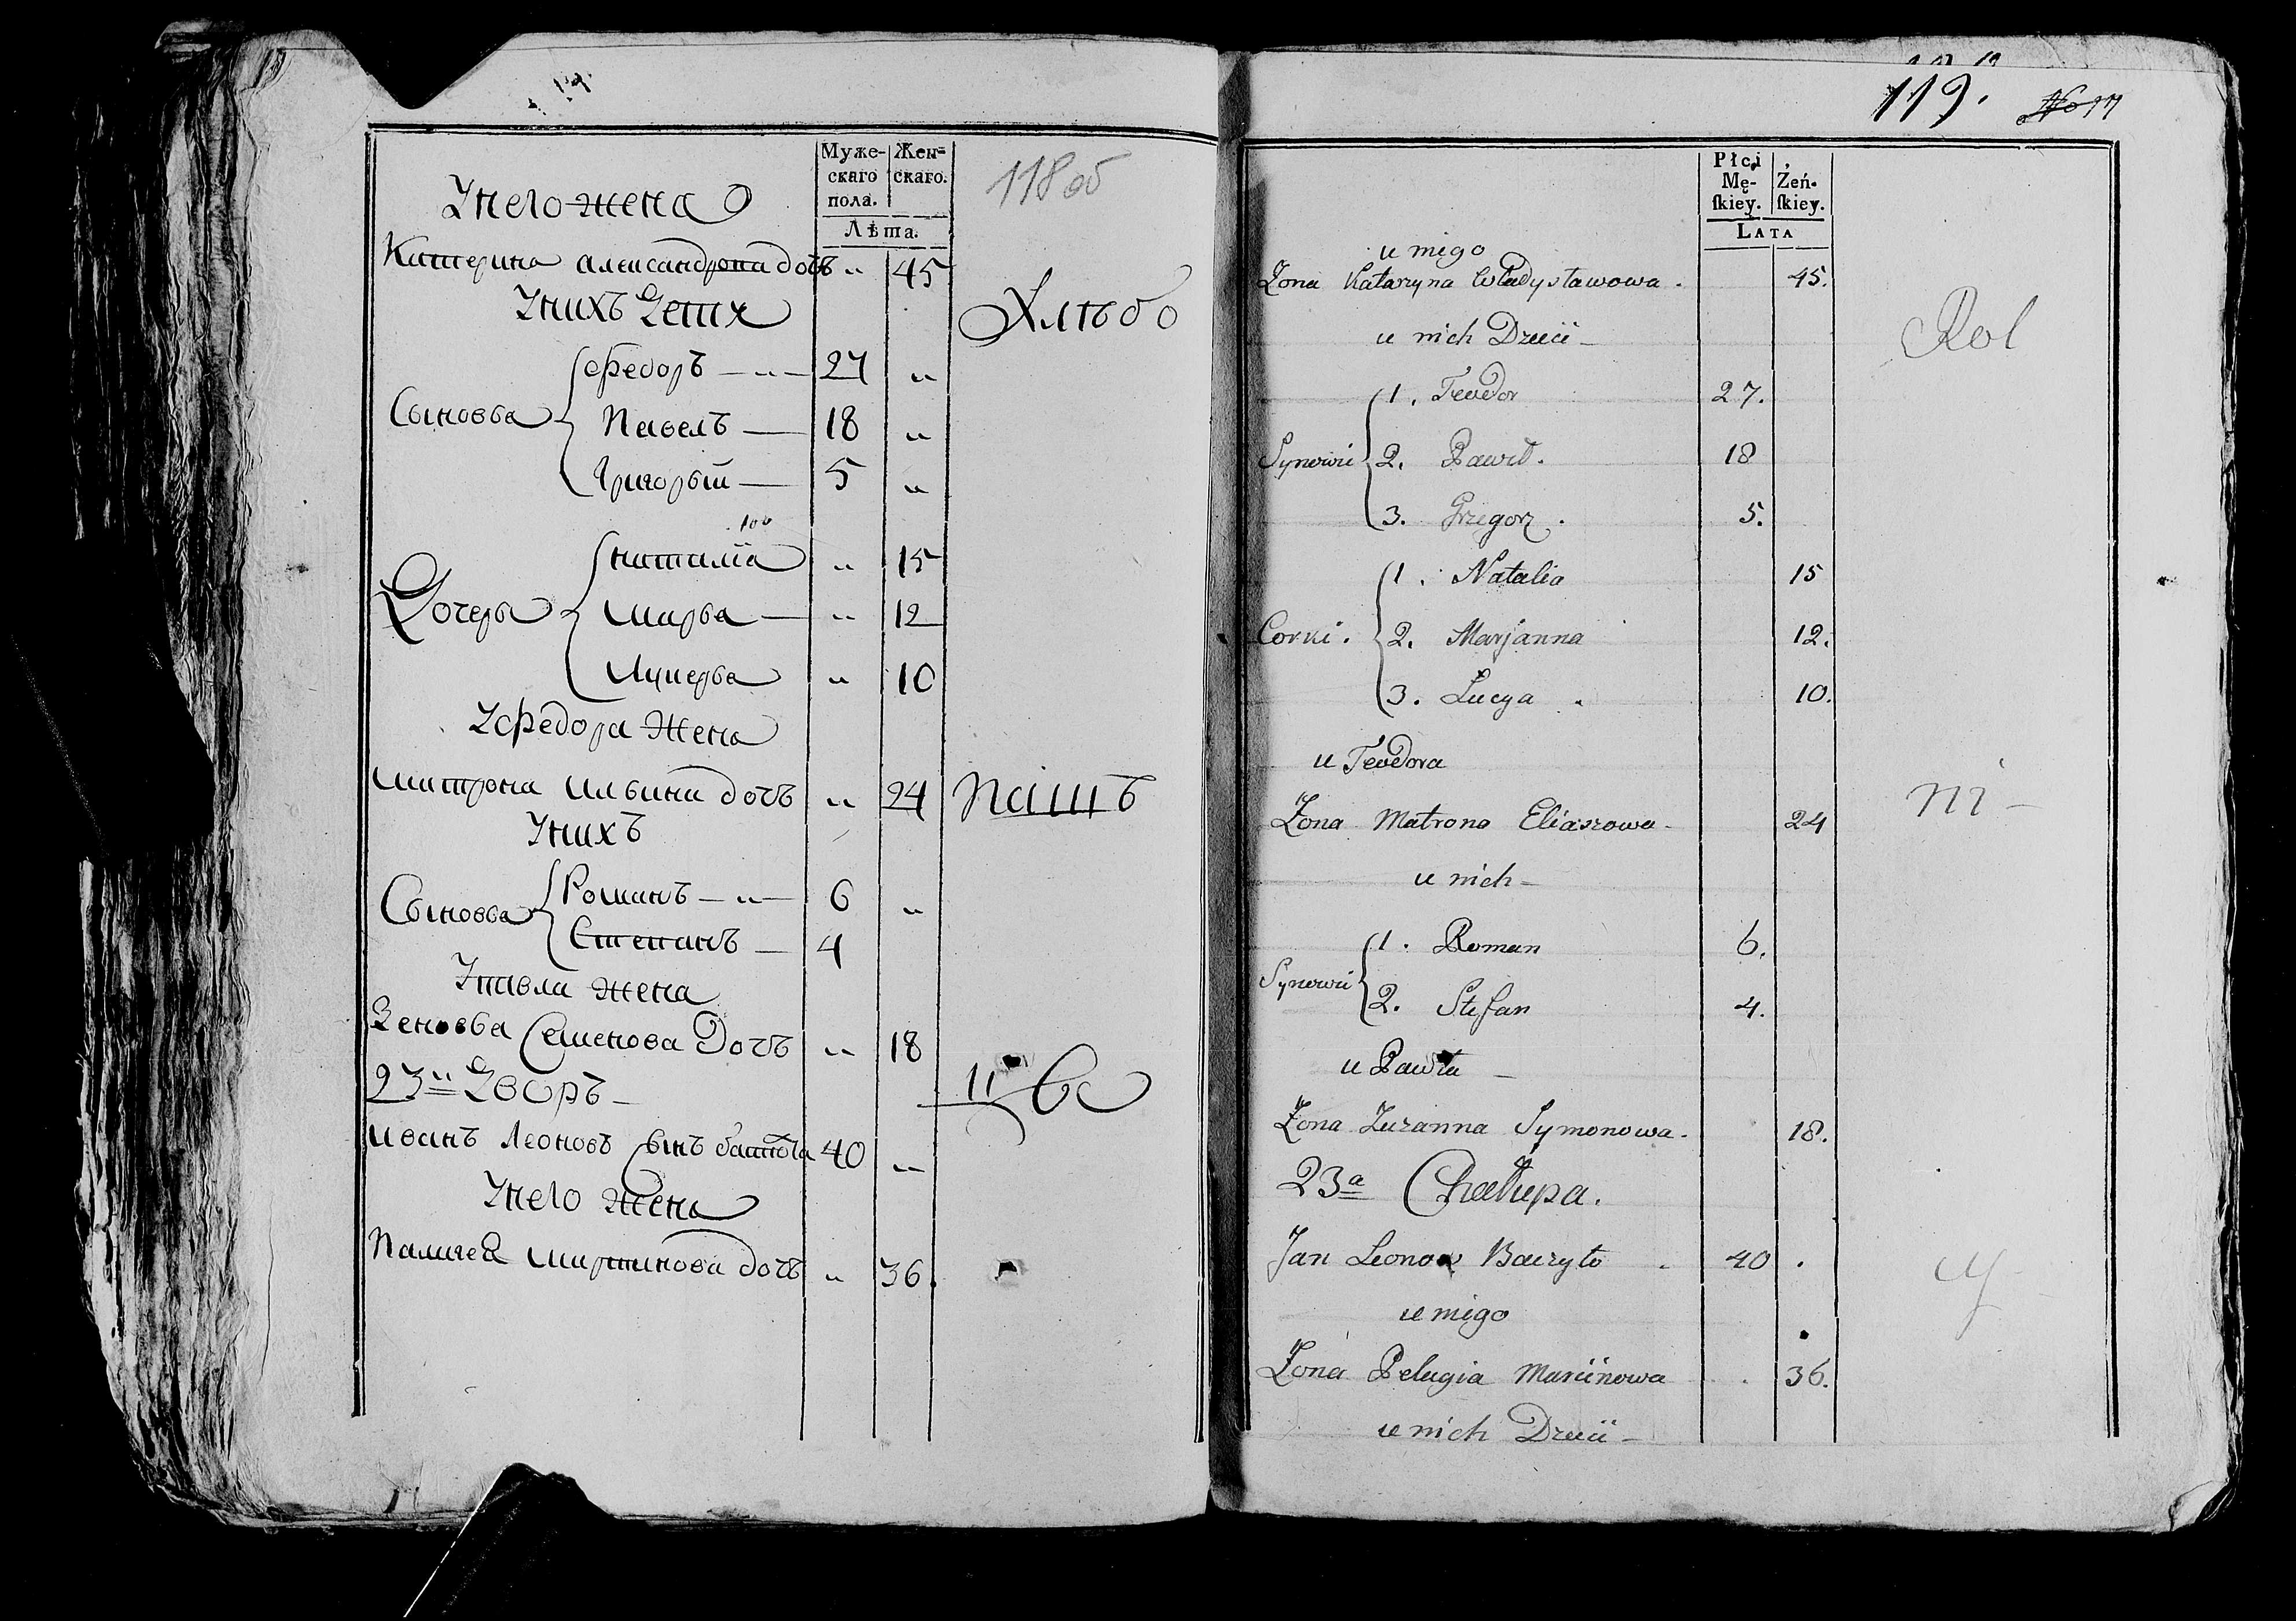 Муже-
скаго
пола.
Жен=
скаго.
Лѣта.
118 об
Унего жена
Катерина Александрова дочь " 45
Унихъ Дети
Хлѣбо
Федоръ — " — 27 "
Сыновья Павелъ — 18 "
Григорый — 5 "
Наталіа " 15
Дочеры Марья — " 12
Луцерья " 10
Уфедора Жена
Матрона Ильина дочь " 24
пашъ
Унихъ
Сыновья Романъ — " — 6 "
Степанъ — 4
Упавла жена
Зеновья Семенова Дочь " 18
23й Дворъ —
Иванъ Леоновъ Сынъ 40 "
Унего жена
Палагея Мартинова дочь " 36.
119. No 17
Płci
Mę-
skiey.
Żeń-
skiey.
LATA
u niego
Żona Katarzyna Władysławowa. 45.
u nich Dzieci —
Rol
1. Teodor 27.
Synowie 2. Paweł. 18
3. Grzegorz. 5.
1. Natalia 15
Corki. 2. Marjanna 12.
3. Lucya 10.
u Teodora
ni —
Żona Matrona Eliaszowa — 24
u nich —
1. Roman 6.
Synowie 2. Stefan 4.
u Pawła —
Żona Zuzanna Symonowa. 18.
23a Chałupa.
Jan Leonow Baczyło 40 .
u niego
Żona Pelagia Marcinowa 36.
u nich Dzieci —